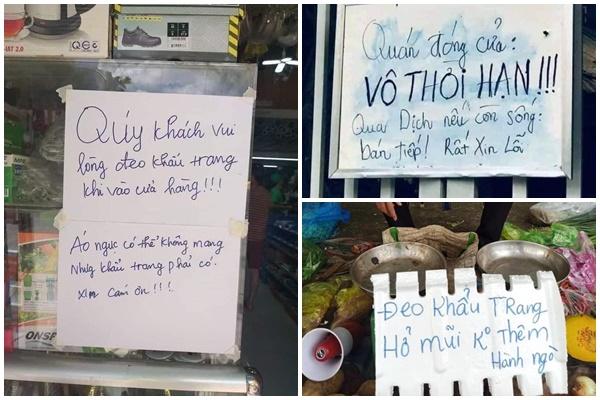 QUÝ KHÁCH VUI
lòng đeo khẩu trang
khi vào cửa hàng!!!
Áo ngực có thể không mang
Nhưg khẩu trang phải có.
Xin cám ơn!!!
Quán đóng cửa:
VÔ THỜI HẠN!!!
Qua Dịch nếu còn sống:
bán tiếp! Rất Xin Lỗi
ĐEO KHẨU TRANG
HỞ MŨI Kº THÊM
HÀNH NGÒ